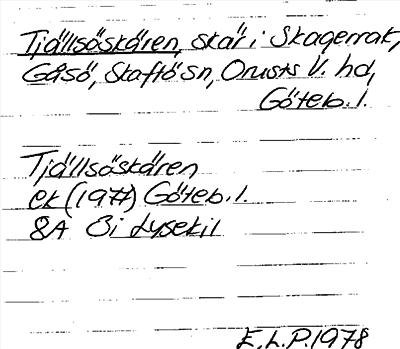 Tjällsöskären, skär i Skagerrak,
Gåsö, Skaftö sn, Orusts V. hd,
Göteb. l.
Tjällsöskären
ek (1977) Göteb. l.
8A 8i Lysekil
E.L.P. 1978